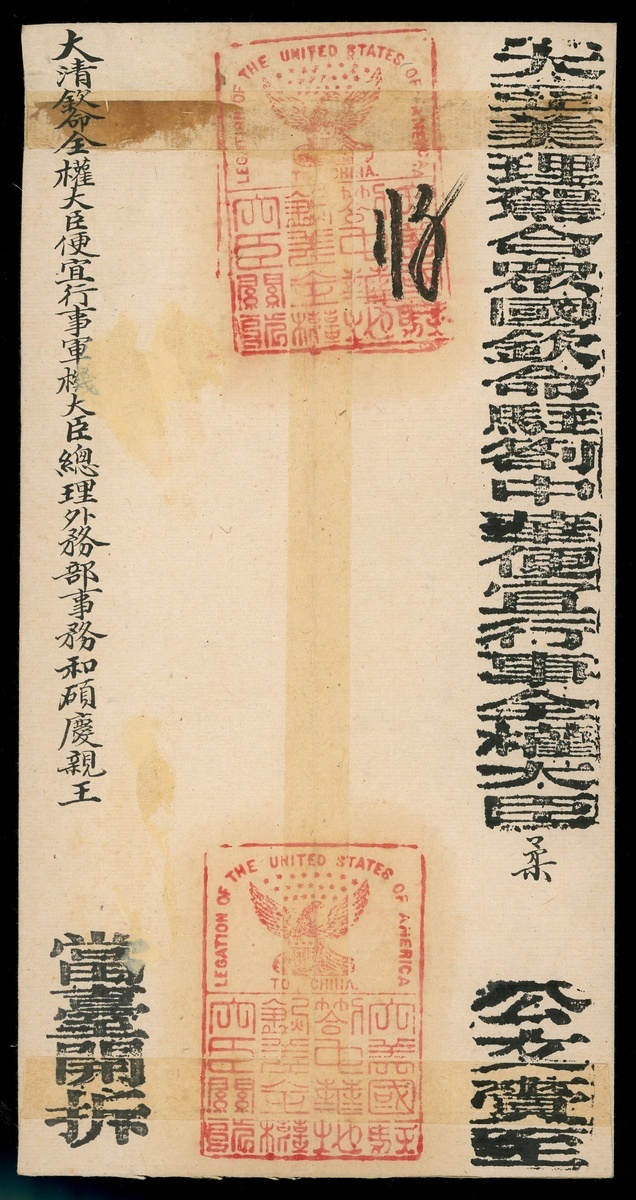 大亞美理駕合眾國欽命駐劄中華便宜行事全權大臣
柔
公文齎至
LEGATION OF THE UNITED STATES OF AMERICA
TO CHINA.
大美國駐
劄中華地
欽差全權
大臣關防
LEGATION OF THE UNITED STATES OF AMERICA
TO CHINA.
大美國駐
劄中華地
欽差全權
大臣關防
大清欽命全權大臣便宜行事軍機大臣總理外務部事務和碩慶親王
當臺開拆